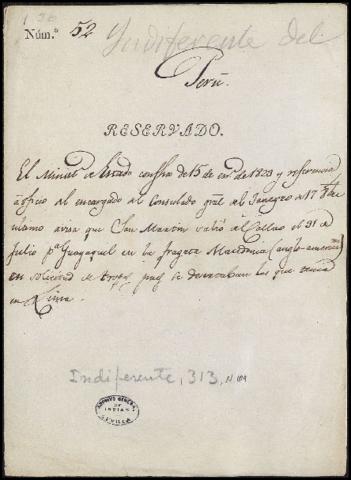 Núm.º 52 Indiferente del
Perú.
RESERVADO.
El Minist.º de Estado con fha de 15 de en.º de 1823 y referencia
á oficio del encargado del Consulado gral del Janeyro de 17
ultimo avisa que San Martin salió del Callao el 31 de
Julio p.ª Guayaquil en la fragata Macedonia (anglo-americana)
en solicitud de tropas, pues se desertaban las que tenia
en Lima.
Indiferente, 313, N
ARCHIVO GENERAL
DE
INDIAS
SEVILLA